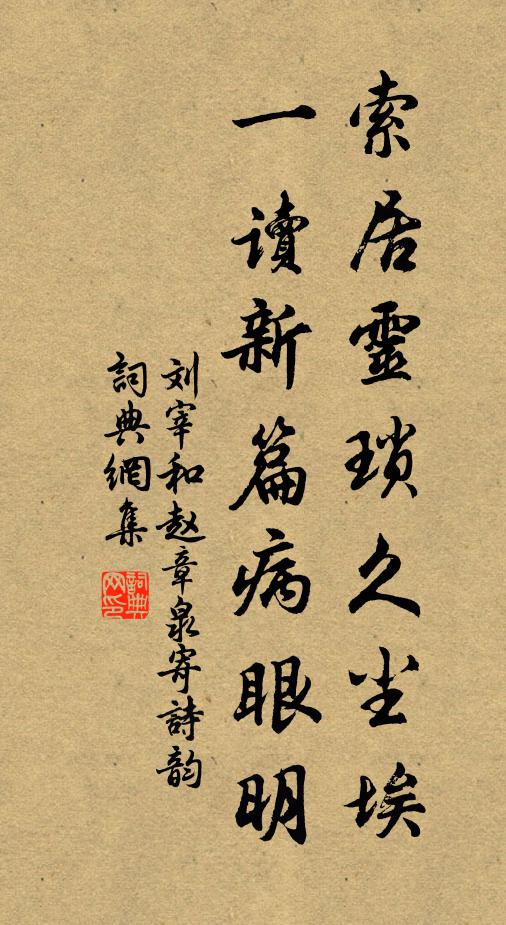 索居靈瑣久尘埃
一讀新篇病眼明
刘宰和赵章泉寄詩韵
詞典網集
詞典
网印